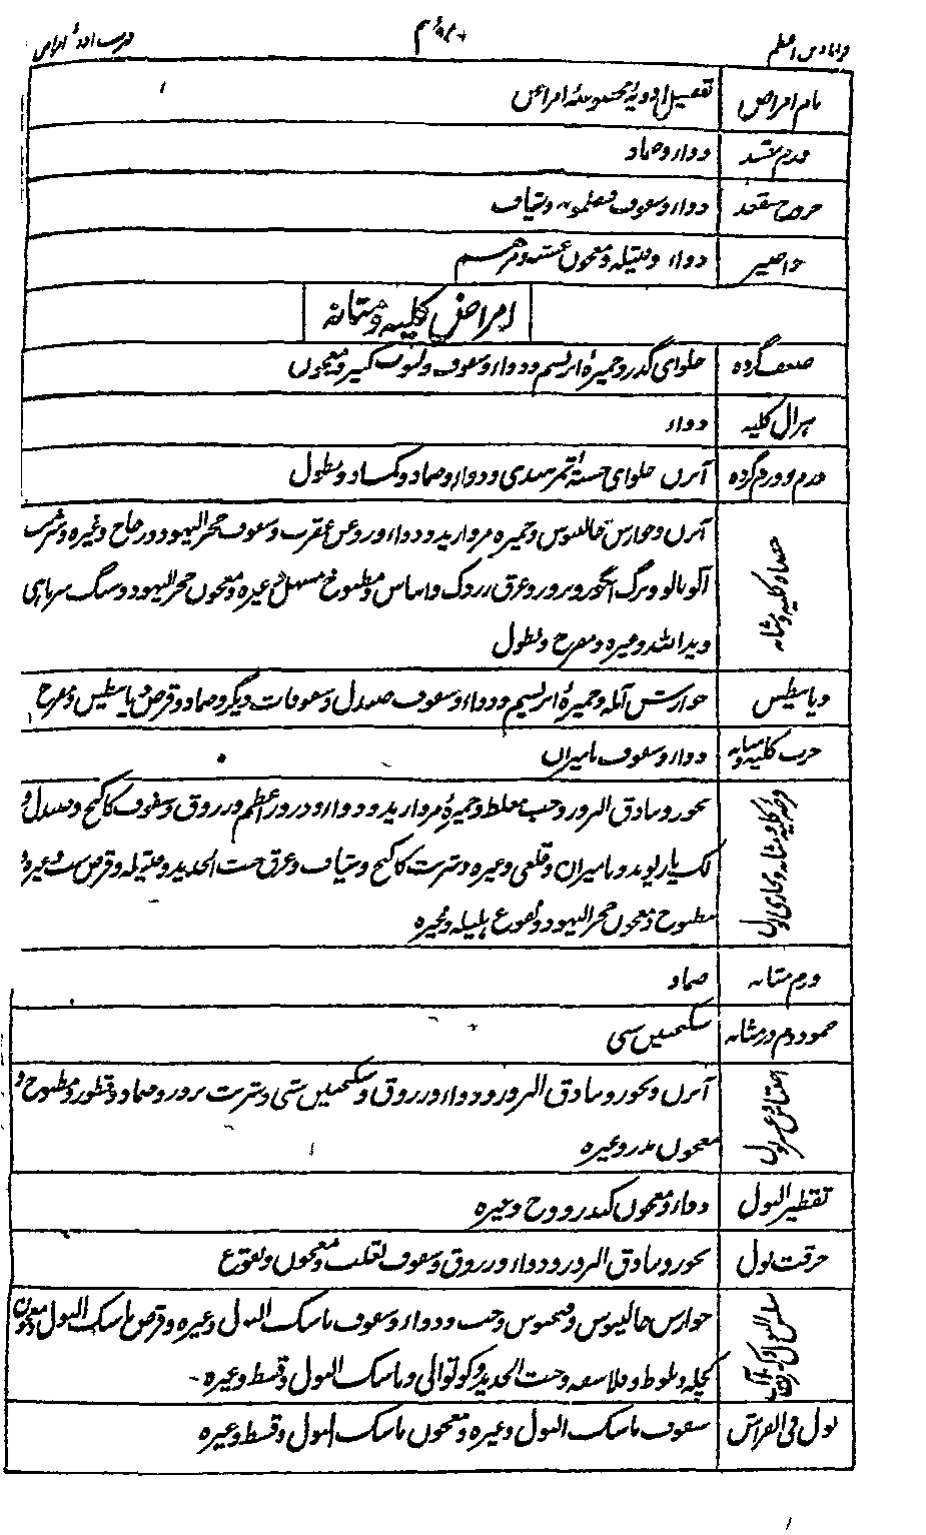 قرابادین اعظم
فہرست ادویۂ امراض
نام امراض
تفصیل ادویۂ مخصوصۂ امراض
ورم مقعد
دواء وضماد
خروج مقعد
دواء وسفوف وشیاف
بواسیر
دواء وفتیلہ ومعجون ومرہم
امراض کلیہ ومثانہ
ضعف گردہ
حلوای گذر وخمیرۂ ابریشم ودواء وسفوف ولبوب کبیر ومعجون
ہزال کلیہ
دواء
درد وورم گردہ
آبزن حلوای خستۂ تمر ہندی ودواء وضماد وکماد ونطول
حصاۃ کلیہ ومثانہ
آبزن وجوارش جالینوس وخمیرہ مروارید ودواء وروغن عقرب وسفوف حجر الیہود وزجاج وغیرہ وشربت
آلوبالو وبرگ انگور وبزور وعرق ومطبوخ مسہل وغیرہ ومعجون حجر الیہود وسنگ سرماہی
وید اللہ وغیرہ ومفرح ونطول
ذیابیطس
جوارش آملہ وخمیرۂ ابریشم ودواء وسفوف صندل وسفوفات دیگر وضماد وقرص ذیابیطس ومفرح
جرب کلیہ ومثانہ
دواء وسفوف مامیران
قرحہ کلیہ ومثانہ ومجاری بول
بخور وبنادق البزور وحب مغلظ وخمیرۂ مروارید ودواء وذرور اعظم وزروق وسفوف کاکنج وصندل و
لک یا ریوند ومامیران وقلعی وغیرہ وشربت کاکنج وشیاف وعرق خبث الحدید وفتیلہ وقرص شب وغیرہ و
مطبوخ ومعجون حجر الیہود ونقوع ہلیلہ وغیرہ
ورم مثانہ
ضماد
جمود دم در مثانہ
سکنجبین
احتباس وعسر بول
آبزن وبخور وبنادق البزور ودواء وزروق وسکنجبین وشربت بزور وضماد وقطور ومطبوخ و
معجون مدر وغیرہ
تقطیر البول
دواء ومعجون کندر ووج وغیرہ
حرقت بول
بخور وبنادق البزور ودواء وزروق وسفوف ومعجون ونقوع
سلس البول
جوارش جالینوس وحب ودواء وسفوف ماسک البول وغیرہ وقرص ماسک البول ومعجون
کچلہ وبلوط وفلاسفہ وخبث الحدید وماسک البول وقسط وغیرہ
بول فی الفراش
سفوف ماسک البول وغیرہ ومعجون ماسک البول وقسط وغیرہ